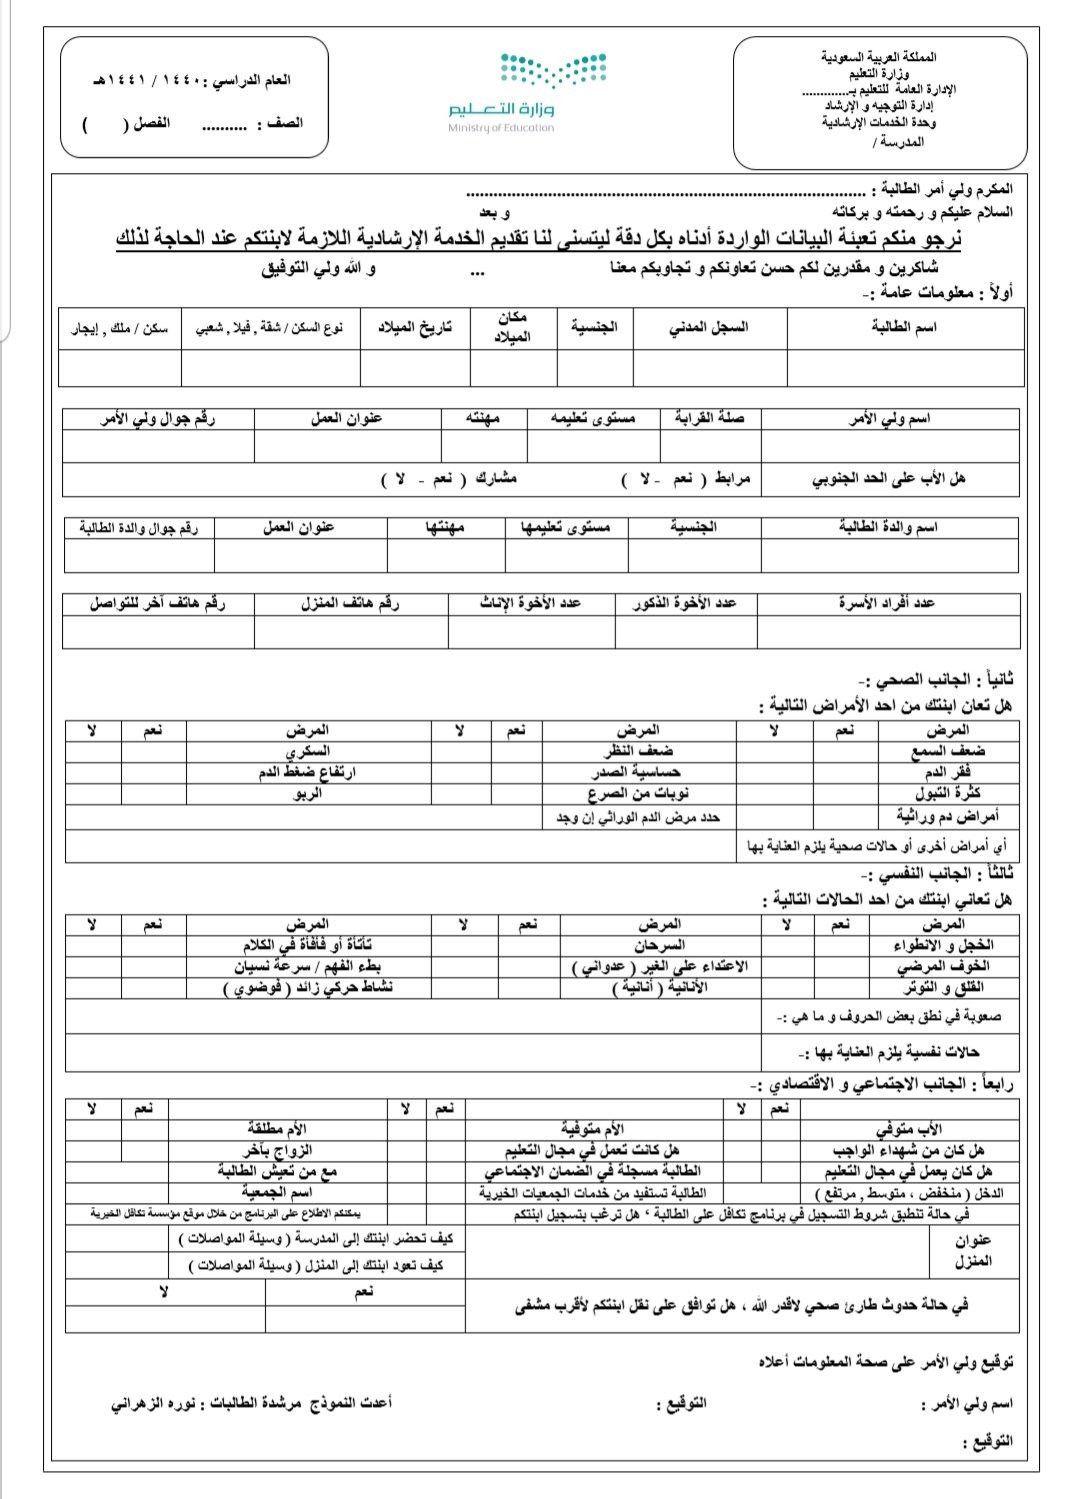 المملكة العربية السعودية
وزارة التعليم
الإدارة العامة للتعليم بـ.............
إدارة التوجيه و الإرشاد
وحدة الخدمات الإرشادية
المدرسة /
وزارة التعـــليم
Ministry of Education
العام الدراسي : ١٤٤٠ / ١٤٤١هـ
الصف : .......... الفصل ( )
المكرم ولي أمر الطالبة : ........................................................................................
السلام عليكم و رحمته و بركاته و بعد
نرجو منكم تعبئة البيانات الواردة أدناه بكل دقة ليتسنى لنا تقديم الخدمة الإرشادية اللازمة لابنتكم عند الحاجة لذلك
شاكرين و مقدرين لكم حسن تعاونكم و تجاوبكم معنا ... و الله ولي التوفيق
أولاً : معلومات عامة :-
اسم الطالبة السجل المدني الجنسية مكان الميلاد تاريخ الميلاد نوع السكن / شقة , فيلا , شعبي سكن / ملك , إيجار
اسم ولي الأمر صلة القرابة مستوى تعليمه مهنته عنوان العمل رقم جوال ولي الأمر
هل الأب على الحد الجنوبي مرابط ( نعم - لا ) مشارك ( نعم - لا )
اسم والدة الطالبة الجنسية مستوى تعليمها مهنتها عنوان العمل رقم جوال والدة الطالبة
عدد أفراد الأسرة عدد الأخوة الذكور عدد الأخوة الإناث رقم هاتف المنزل رقم هاتف آخر للتواصل
ثانياً : الجانب الصحي :-
هل تعان ابنتك من احد الأمراض التالية :
المرض نعم لا المرض نعم لا المرض نعم لا
ضعف السمع ضعف النظر السكري
فقر الدم حساسية الصدر ارتفاع ضغط الدم
كثرة التبول نوبات من الصرع الربو
أمراض دم وراثية حدد مرض الدم الوراثي إن وجد
أي أمراض أخرى أو حالات صحية يلزم العناية بها
ثالثاً : الجانب النفسي :-
هل تعاني ابنتك من احد الحالات التالية :
المرض نعم لا المرض نعم لا المرض نعم لا
الخجل و الانطواء السرحان تأتأة أو فأفأة في الكلام
الخوف المرضي الاعتداء على الغير ( عدواني ) بطء الفهم / سرعة نسيان
القلق و التوتر الأنانية ( أنانية ) نشاط حركي زائد ( فوضوي )
صعوبة في نطق بعض الحروف و ما هي :-
حالات نفسية يلزم العناية بها :-
رابعاً : الجانب الاجتماعي و الاقتصادي :-
نعم لا نعم لا نعم لا
الأب متوفي الأم متوفية الأم مطلقة
هل كان من شهداء الواجب هل كانت تعمل في مجال التعليم الزواج بآخر
هل كان يعمل في مجال التعليم الطالبة مسجلة في الضمان الاجتماعي مع من تعيش الطالبة
الدخل ( منخفض ، متوسط , مرتفع ) الطالبة تستفيد من خدمات الجمعيات الخيرية اسم الجمعية
في حالة تنطبق شروط التسجيل في برنامج تكافل على الطالبة ، هل ترغب بتسجيل ابنتكم يمكنكم الاطلاع على البرنامج من خلال موقع مؤسسة تكافل الخيرية
عنوان المنزل كيف تحضر ابنتك إلى المدرسة ( وسيلة المواصلات )
كيف تعود ابنتك إلى المنزل ( وسيلة المواصلات )
في حالة حدوث طارئ صحي لاقدر الله ، هل توافق على نقل ابنتكم لأقرب مشفى نعم لا
توقيع ولي الأمر على صحة المعلومات أعلاه
اسم ولي الأمر : التوقيع : أعدت النموذج مرشدة الطالبات : نوره الزهراني
التوقيع :